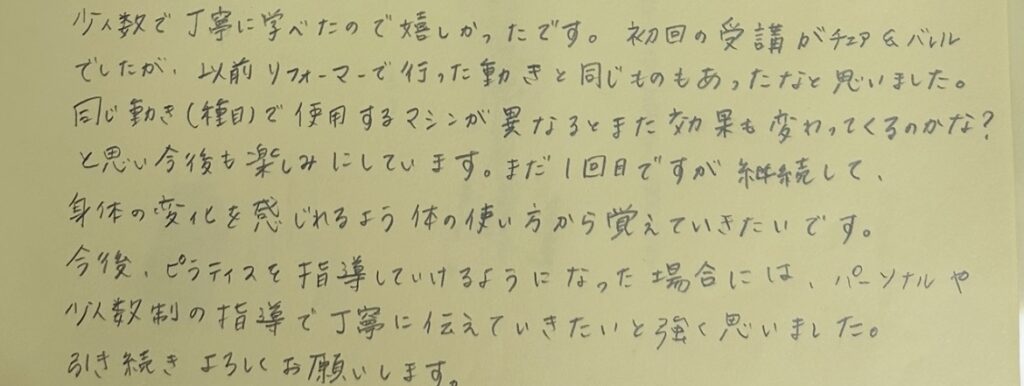 少人数で丁寧に学べたので嬉しかったです。初回の受講がチェア&バレル
でしたが、以前リフォーマーで行った動きと同じものもあったなと思いました。
同じ動き(種目)で使用するマシンが異なるとまた効果も変わってくるのかな?
と思い今後も楽しみにしています。まだ1回目ですが継続して、
身体の変化を感じれるよう体の使い方から覚えていきたいです。
今後、ピラティスを指導していけるようになった場合には、パーソナルや
少人数制の指導で丁寧に伝えていきたいと強く思いました。
引き続きよろしくお願いします。